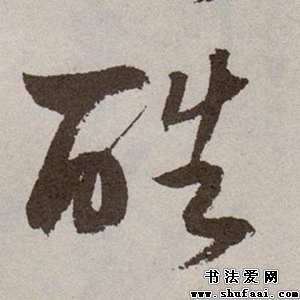 酷
书法爱网
www.shufaai.com